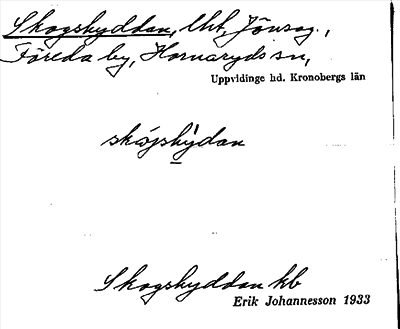 Skogshyddan, lht, Jönsag.,
Föreda by, Hornaryds sn,
Uppvidinge hd. Kronobergs län
skojshydan
Skogshyddan kb
Erik Johannesson 1933